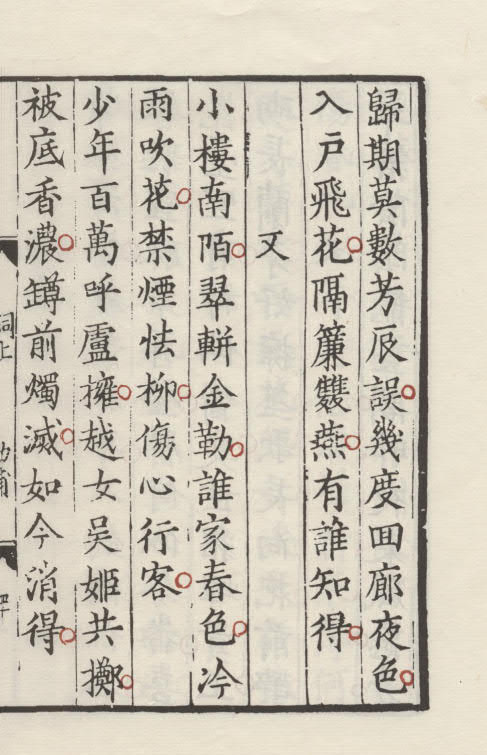 歸期莫數芳辰誤幾度囬廊夜色
入戸飛花隔簾雙燕有誰知得
又
小樓南陌翠軿金勒誰家春色冷
雨吹花禁煙怯柳傷心行客
少年百萬呼盧擁越女吳姬共擲
被底香濃罇前燭滅如今消得
詞上